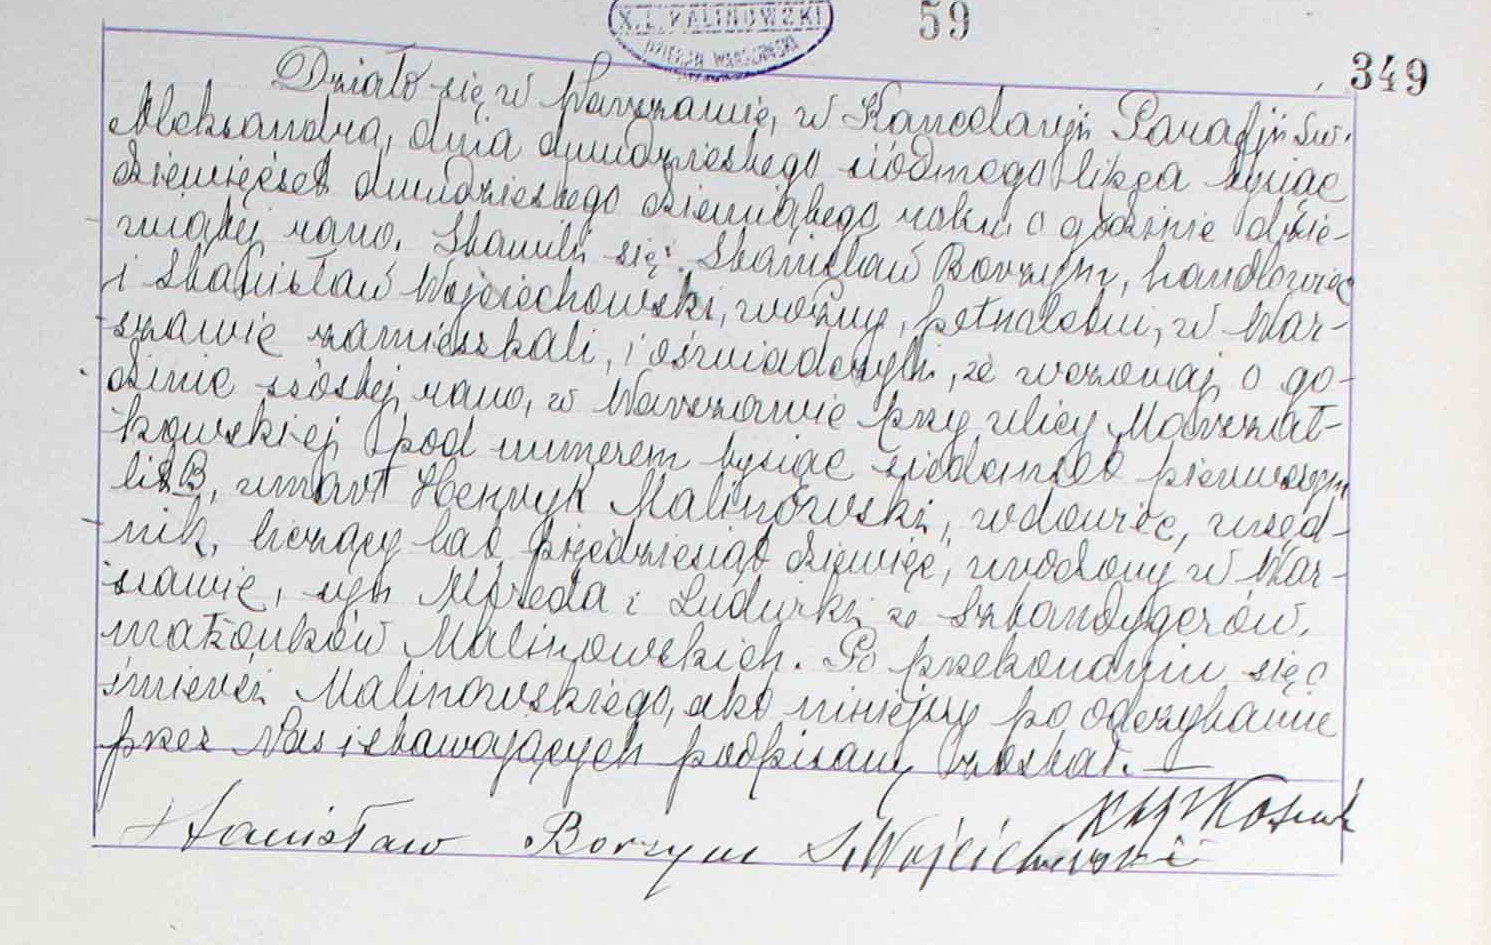 X. L. KALINOWSKI
DZIEKAN WARSZAWSKI
59
349
Działo się w Warszawie, w Kancelaryji Parafji Św.
Aleksandra, dnia dwudziestego siódmego lipca tysiąc
dziewięćset dwudziestego dziewiątego roku o godzinie dzie-
wiątej rano. Stawili się: Stanisław Borzym, handlowiec
i Stanisław Wojciechowski, woźny, pełnoletni, w War-
szawie zamieszkali, i oświadczyli, że wczoraj o go-
dzinie szóstej rano, w Warszawie przy ulicy Marszał-
kowskiej pod numerem tysiąc siedemset pierwszym
lit B, umarł Henryk Malinowski, wdowiec, urzęd-
nik, liczący lat pięćdziesiąt dziewięć, urodzony w War-
szawie, syn Alfreda i Ludwiki ze Sztandygerów,
małżonków Malinowskich. Po przekonaniu się o
śmierci Malinowskiego, akt niniejszy po odczytaniu
przez Nas i stawających podpisany został. —
Stanisław Borzym S. Wojciechowski